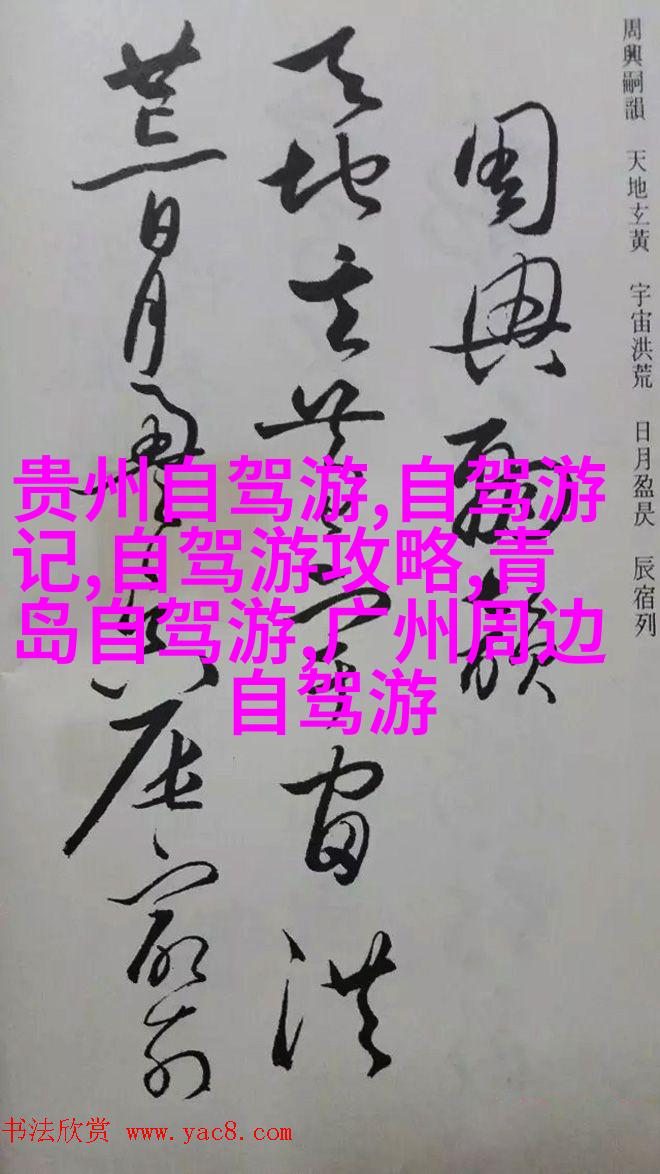 周興嗣韻 天地玄黃 宇宙洪荒 日月盈昃 辰宿列
周興嗣韻
天地玄黃宇宙洪
荒日月盈昃辰宿列
贵州自驾游,自驾游
记,自驾游攻略,青
岛自驾游,广州周边
自驾游
书法欣赏 www.yac8.com